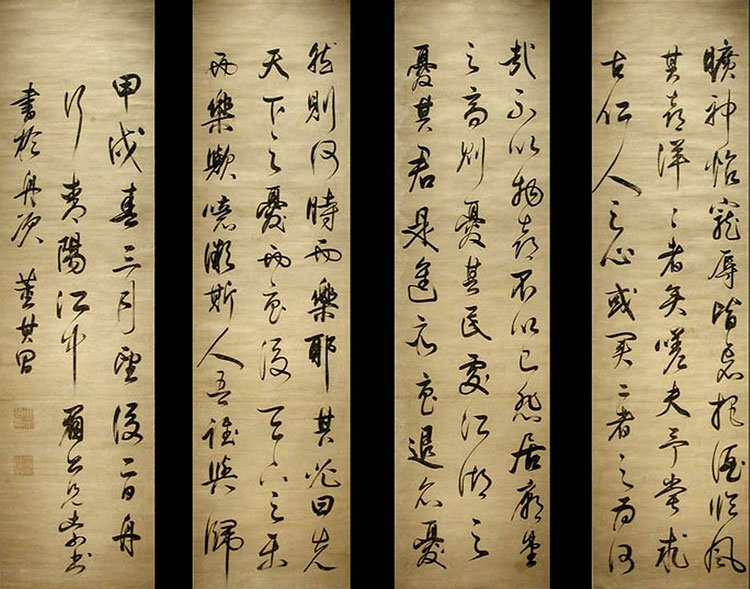 曠神怡寵辱皆忘把酒臨風
其喜洋〻者矣嗟夫予嘗求
古仁人之心或異二者之為何
哉不以物喜不以己悲居廟堂
之高則憂其民處江湖之
憂其君是進亦憂退亦憂
然則何時而樂耶其必曰先
天下之憂而憂後天下之樂
而樂歟噫微斯人吾誰與歸
甲戌春三月望後二日舟
行青陽江中眉公兄
書於舟次董其昌